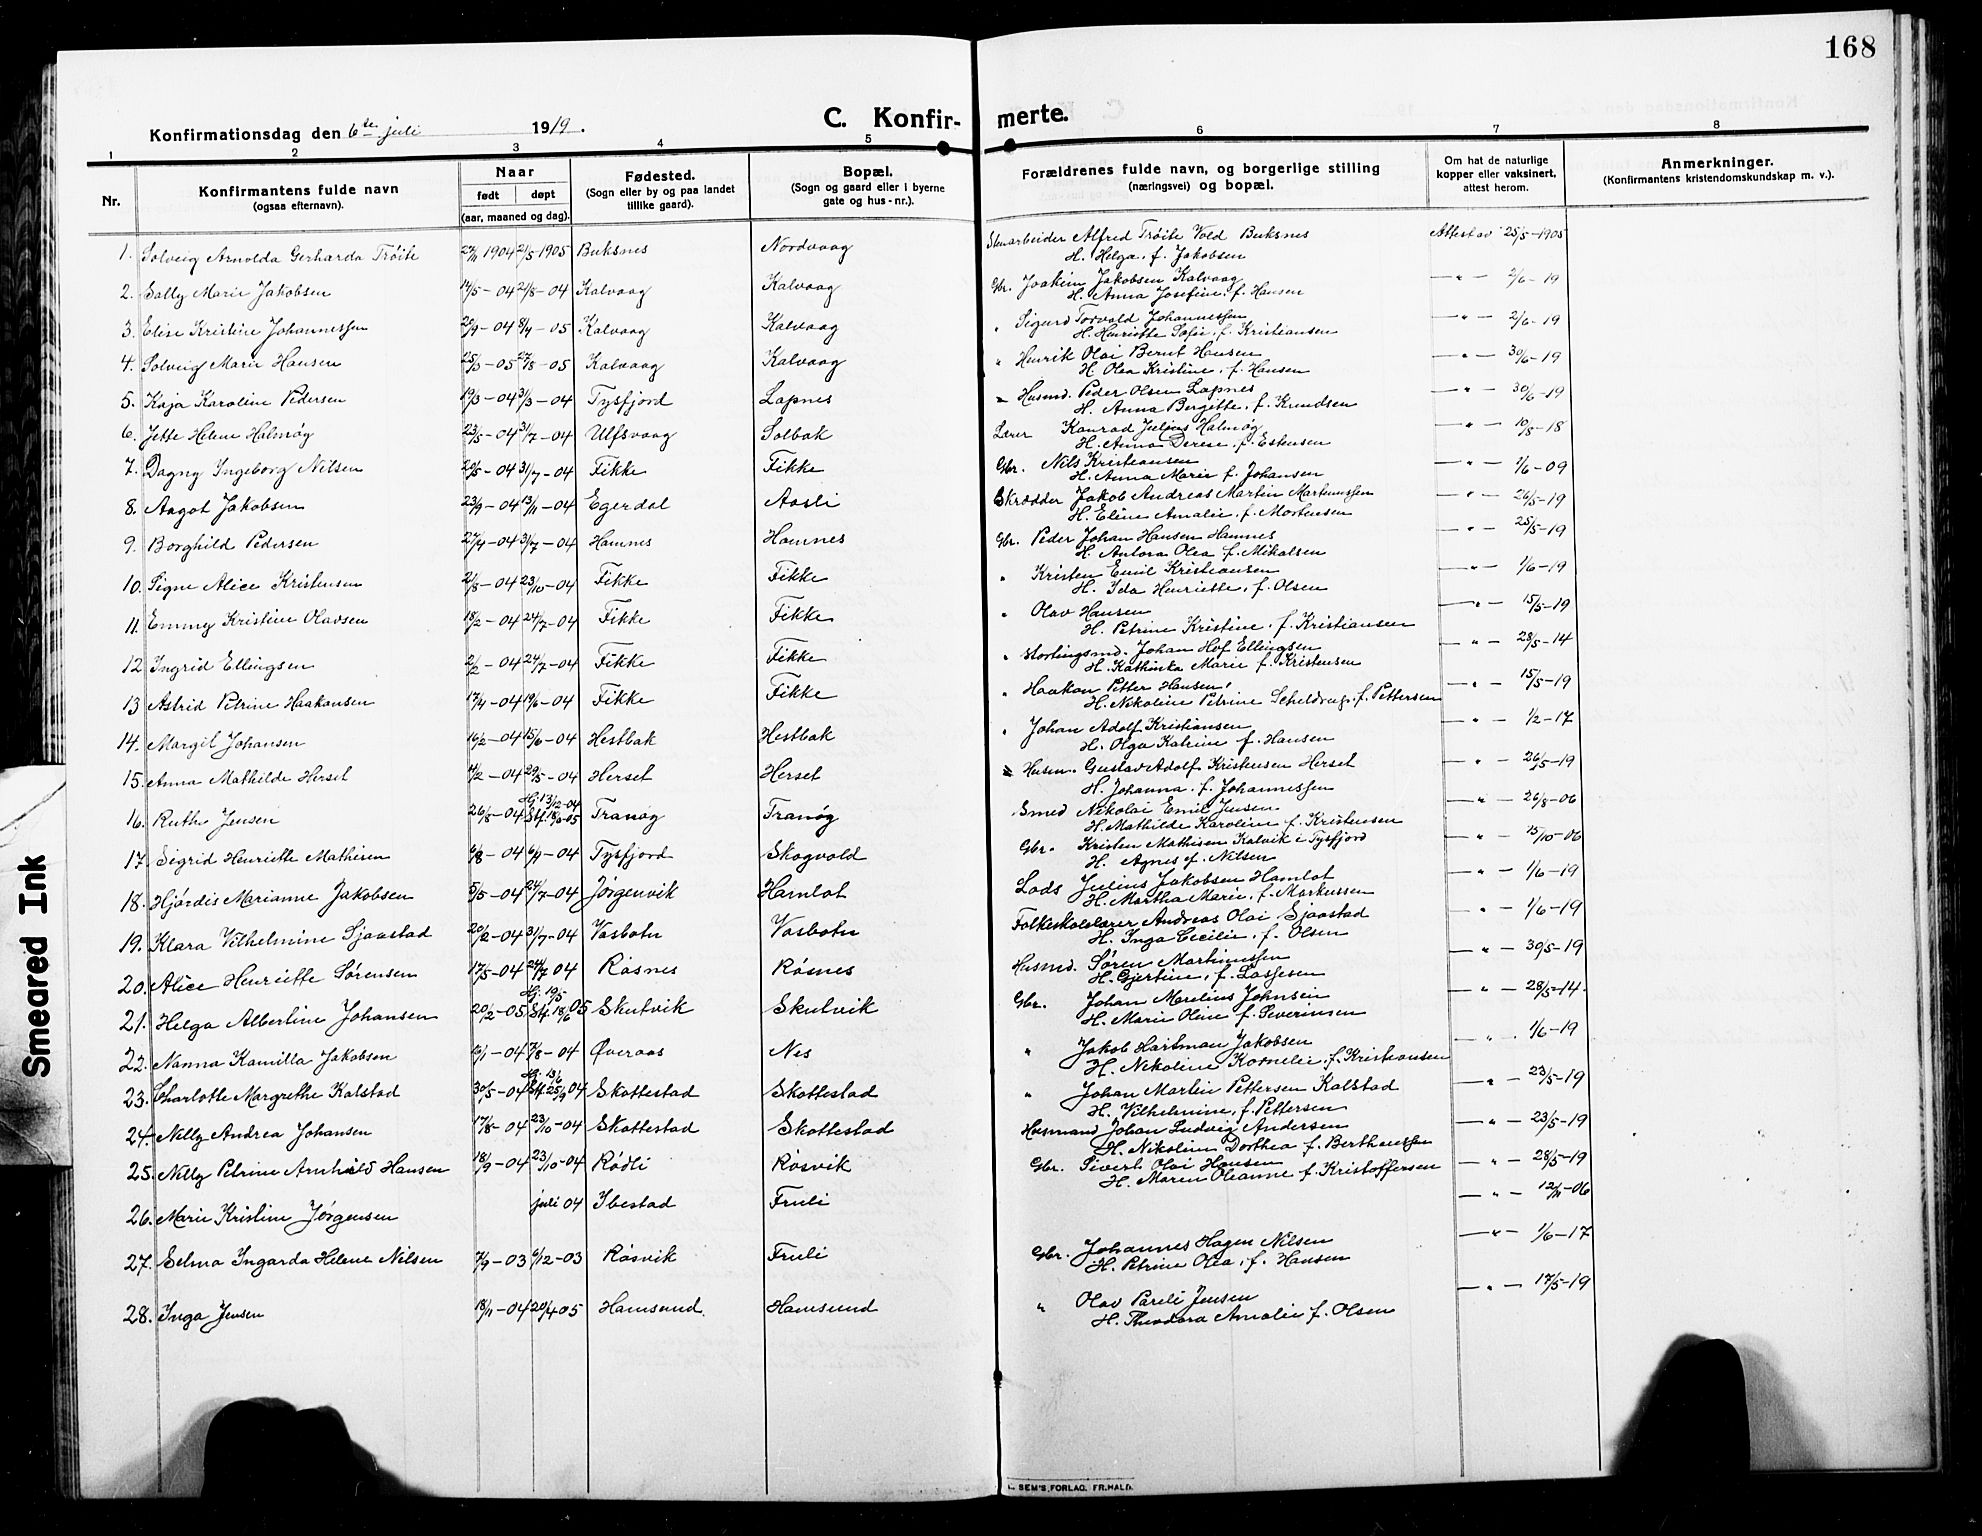 168
Konfirmationsdag den 6te juli 1919.
C. Konfirmerte.
1 2 3 4 5 6 7 8
Nr.
Konfirmantens fulde navn
(ogsaa efternavn).
Naar
født døpt
(aar, maaned og dag).
Fødested.
(Sogn eller by og paa landet
tillike gaard).
Bopæl.
(Sogn og gaard eller i byerne
gate og hus-nr.).
Forældrenes fulde navn, og borgerlige stilling
(næringsvei) og bopæl.
Om hat de naturlige
kopper eller vaksinert,
attest herom.
Anmerkninger.
(Konfirmantens kristendomskundskap m. v.).
1. Solveig Arnolda Gerharda Trøite 27/11 1904 21/5 1905 Buksnes Nordvaag Stenarbeider Alfred Trøite Vold Buksnes Attest av 25/5-1905
H. Helga, f. Jakobsen
2. Sally Marie Jakobsen 14/5-04 21/8-04 Kalvaag Kalvaag Gbr. Joakim Jakobsen Kalvaag -"- 2/6-19
H. Anna Josefine, f. Hansen
3. Elise Kristine Johannessen 20/9-04 8/4-05 Kalvaag Kalvaag " Sigurd Torvald Johannessen -"- 2/6-19
H. Henriette Sofie, f. Kristiansen
4. Solveig Marie Hansen 25/3-05 27/8-05 Kalvaag Kalvaag " Henrik Olai Bernt Hansen -"- 30/6-19
H. Olea Kristine, f. Hansen
5. Kaja Karoline Pedersen 19/3-04 31/3-04 Tysfjord Lapnes Husmd. Peder Olsen Lapnes -"- 30/6-19
H. Anna Bergitte, f. Knudsen
6. Jette Helene Halmøy 23/5-04 31/7-04 Ulfsvaag Solbak Lærer Konrad Julius Halmøy -"- 10/8-18
H. Anna Derese, f. Estensen
7. Dagny Ingeborg Nilsen 20/5-04 31/7-04 Fikke Fikke Gbr. Nils Kristiansen -"- 1/6-09
H. Anna Marie f. Johansen
8. Aagot Jakobsen 23/9-04 13/11-04 Egerdal Aasli Skrædder Jakob Andreas Martin Martinussen -"- 26/5-19
H. Eline Amalie, f. Mortensen
9. Borghild Pedersen 27/4-04 31/7-04 Hamnes Hamnes Gbr. Peder Johan Hansen Hamnes -"- 25/5-19
H. Antora Olea f. Mikalsen
10. Signe Alice Kristensen 21/8-04 23/10-04 Fikke Fikke " Kristen Emil Kristiansen -"- 1/6-19
H. Ida Henriette, f. Olsen
11. Emmy Kristine Olavsen 18/2-04 24/7-04 Fikke Fikke " Olav Hansen -"- 15/5-19
H. Petrine Kristine, f. Kristiansen
12 Ingrid Ellingsen 2/2-04 24/7-04 Fikke Fikke " Stortingsmd. Johan Hof Ellingsen -"- 28/5-14
H. Kathinka Marie f. Kristensen
13 Astrid Petrine Haakonsen 17/4-04 19/6-04 Fikke Fikke " Haakon Petter Hansen, -"- 15/5-19
H. Nikoline Petrine f. Pettersen
14. Margit Johansen 16/2-04 15/6-04 Hestbak Hestbak " Johan Adolf Kristiansen -"- 1/2-17
H. Olga Katrine f. Hansen
15. Anna Mathilde Herset 4/2-04 29/5-04 Herset Herset Husm. Gustav Adolf Kristensen Herset -"- 26/5-19
H. Johanna, f. Johannessen
16. Ruth Jensen 26/8-04 Hj. 13/12-04 Stf. 18/6-05 Tranøy Tranøy Smed Nikolai Emil Jensen -"- 26/8-06
H. Mathilde Karoline f. Kristensen
17. Sigrid Henriette Mathisen 6/8-04 6/9-04 Tysfjord Skogvold Gbr. Kristen Mathisen Kalvik i Tysfjord -"- 15/10-06
H. Agnes f. Nilsen
18. Hjørdis Marianne Jakobsen 5/5-04 24/7-04 Jørgenvik Hamlot Lods Julius Jakobsen Hamlot -"- 1/6-19
H. Martha Marie, f. Markussen
19. Klara Vilhelmine Sjaastad 20/2-04 31/7-04 Vasbotn Vasbotn Folkeskolelærer Andreas Olai Sjaastad -"- 1/6-19
H. Inga Cecilie, f. Olsen
20. Alice Henriette Sørensen 17/5-04 24/7 04 Røsnes Røsnes Husmd. Søren Martinussen -"- 30/5-19
H. Gjertine, f. Lassesen
21. Helga Albertine Johansen 20/2-05 Hj. 19/5 Stf. 18/6 05 Skutvik Skutvik Gbr. Johan Merelius Johnsen -"- 28/5-14.
H. Marie Oline f. Severinsen
22. Nanna Kamilla Jakobsen 6/1-04 7/8-04 Øveraas Nes " Jakob Hartman Jakobsen -"- 1/6-19
H. Nikoline Kornelie, f. Kristiansen
23. Charlotte Margrethe Kalstad 30/5-04 Hj. 13/6 Stf. 25/9 04 Skottestad Skottestad " Johan Martin Pettersen Kalstad -"- 23/5-19
H. Vilhelmine, f. Pettersen
24. Nelly Andrea Johansen 17/8-04 23/10-04 Skottestad Skottestad Husmand Johan Ludvig Andersen -"- 23/5-19
H. Nikoline Dorthea f. Berthinussen
25. Nelly Petrine Arnhild Hansen 18/9-04 23/10-04 Rødli Røsvik Gbr. Sivert Olai Hansen -"- 28/5-19
H. Maren Oleanne f. Kristoffersen
26. Marie Kristine Jørgensen juli 04 Ibestad Fruli -"- 12/11-06
27. Selma Ingarda Helene Nilsen 7/9-03 6/12-03 Røsvik Fruli Gbr. Johannes Hagen Nilsen -"- 1/6-17
H. Petrine Olea, f. Hansen
28. Inga Jensen 18/11-04 20/4 05 Hamsund. Hamsund " Olav Pareli Jensen -"- 17/5-19
H. Theodora Amalie f. Olsen
SEM'S FORLAG. FR.HALD.
Smeared Ink